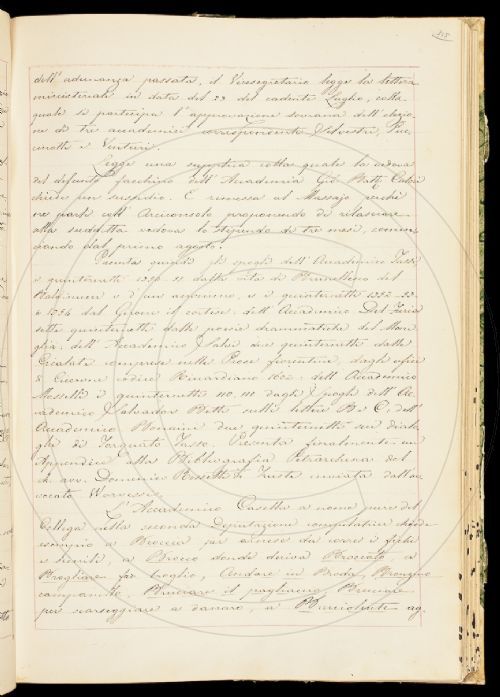 215
dell'adunanza passata, il Vicesegretario legge la lettera
ministeriale in data del 23 del cadente Luglio, colla
quale si partecipa l'approvazione sovrana dell'elezio
ne di tre accademici corrispondenti Silvestri, Puc
cinotti e Venturi.
Legge una supplica colla quale la vedova
del defunto facchino dell'Accademia Gio Batt.
chiede un sussidio. È rimessa al Massajo perchè
ne parli coll'Arciconsolo proponendo di rilasciare
alla suddetta vedova lo stipendio di tre mesi, comin
ciando dal primo agosto.
Presenta quindi gli spogli dell'Accademico
i quinternetti 1290-91 dalla vita di Brunellesco del
Baldinucci e d'un anonimo, e i quinternetti 1292-93
e 1294 dal Girone il cortese: dell'Accademico Del Furia
sette quinternetti dalle poesie drammatiche del Moni
glia: dell'Accademico Salvi due quinternetti dalle
Cicalate comprese nelle Prose fiorentine, dagli ufizi
di Cicerone codice Riccardiano dell'Accademico
Masselli i quinternetti 110, 111 dagli spogli dell'Ac
cademico Salvador Betti sulle lettere B e C, dell'
Accademico Bonaini due quinternetti sui dialo
ghi di Torquato Tasso. Presenta finalmente un
Appendice alla Bibliografia Petrarchesca del
ch. avv. Domenico Rossetti di Trieste inviata dall'av
vocato
L'Accademico Casella a nome pure del
Collega nella seconda Deputazione compilatrice chiede
esempio a Broccia per arnese da correr i fichi
e simili, a Brocco donde deriva Broccato, a
Brogliare far broglio, Andare in Broda, Bronzino
campanello, Bruciare il pagliaccio, Bruciare
per scarseggiare a danaro, a Bruciolente ag.